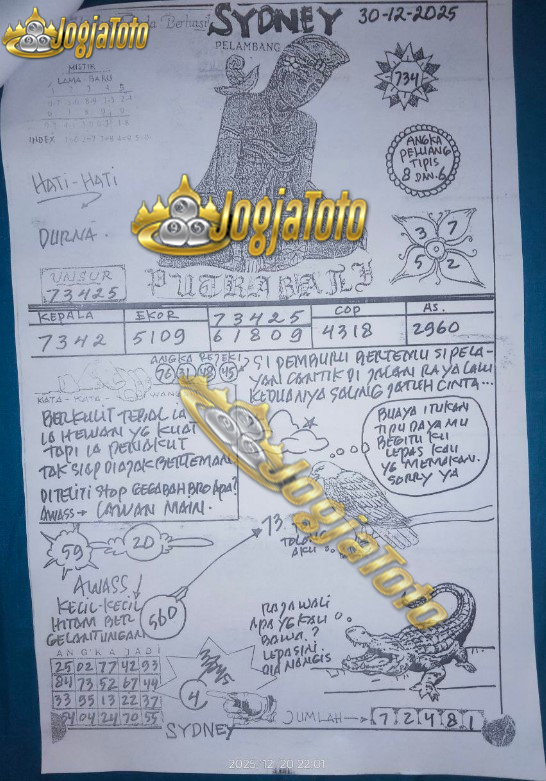 JogjaToto
Berhasil
SYDNEY 30-12-2025
PELAMBANG
MISTIK
LAMA BARU
INDEX
734
ANGKA
PELUANG
TIPIS
8 DAN 6
HATI-HATI
DURNA
3 7
5 2
JogjaToto
UNSUR
73425
PUTRA BALI
KEPALA EKOR 73425 COP AS.
7342 5109 61809 4318 2960
ANGKA REJEKI
76 31 48 45
SI PEMBURU BERTEMU SI PELA-
YAN CANTIK DI JALAN RAYA LALU
KEDUANYA SALING JATUH CINTA...
KATA-KATA
BERKULIT TEBAL
IA HEWAN YG KUAT
TAPI IA PENAKUT
TAK SIAP DIAJAK BERTEMAN
DITELITI STOP GEGABAH BRO APA?
AWASS → LAWAN MAIN.
BUAYA ITUKAN
TIPU DAYA MU
BEGITU KU
LEPAS KAU
YG MEMAKAN.
SORRY YA
JogjaToto
13.
TOLONG
AKU
59 20
AWASS
KECIL-KECIL
HITAM BER
GELANTUNGAN
560
RAJAWALI
APA YG KAU
BAWA ?
LEPASINI
DIA NANGIS
ANGKA JADI
25 02 77 42 93
84 73 52 67 44
33 95 13 22 37
54 04 24 70 55
4
SYDNEY
JUMLAH → 7 2 4 8 1
2025.12.20 22:01